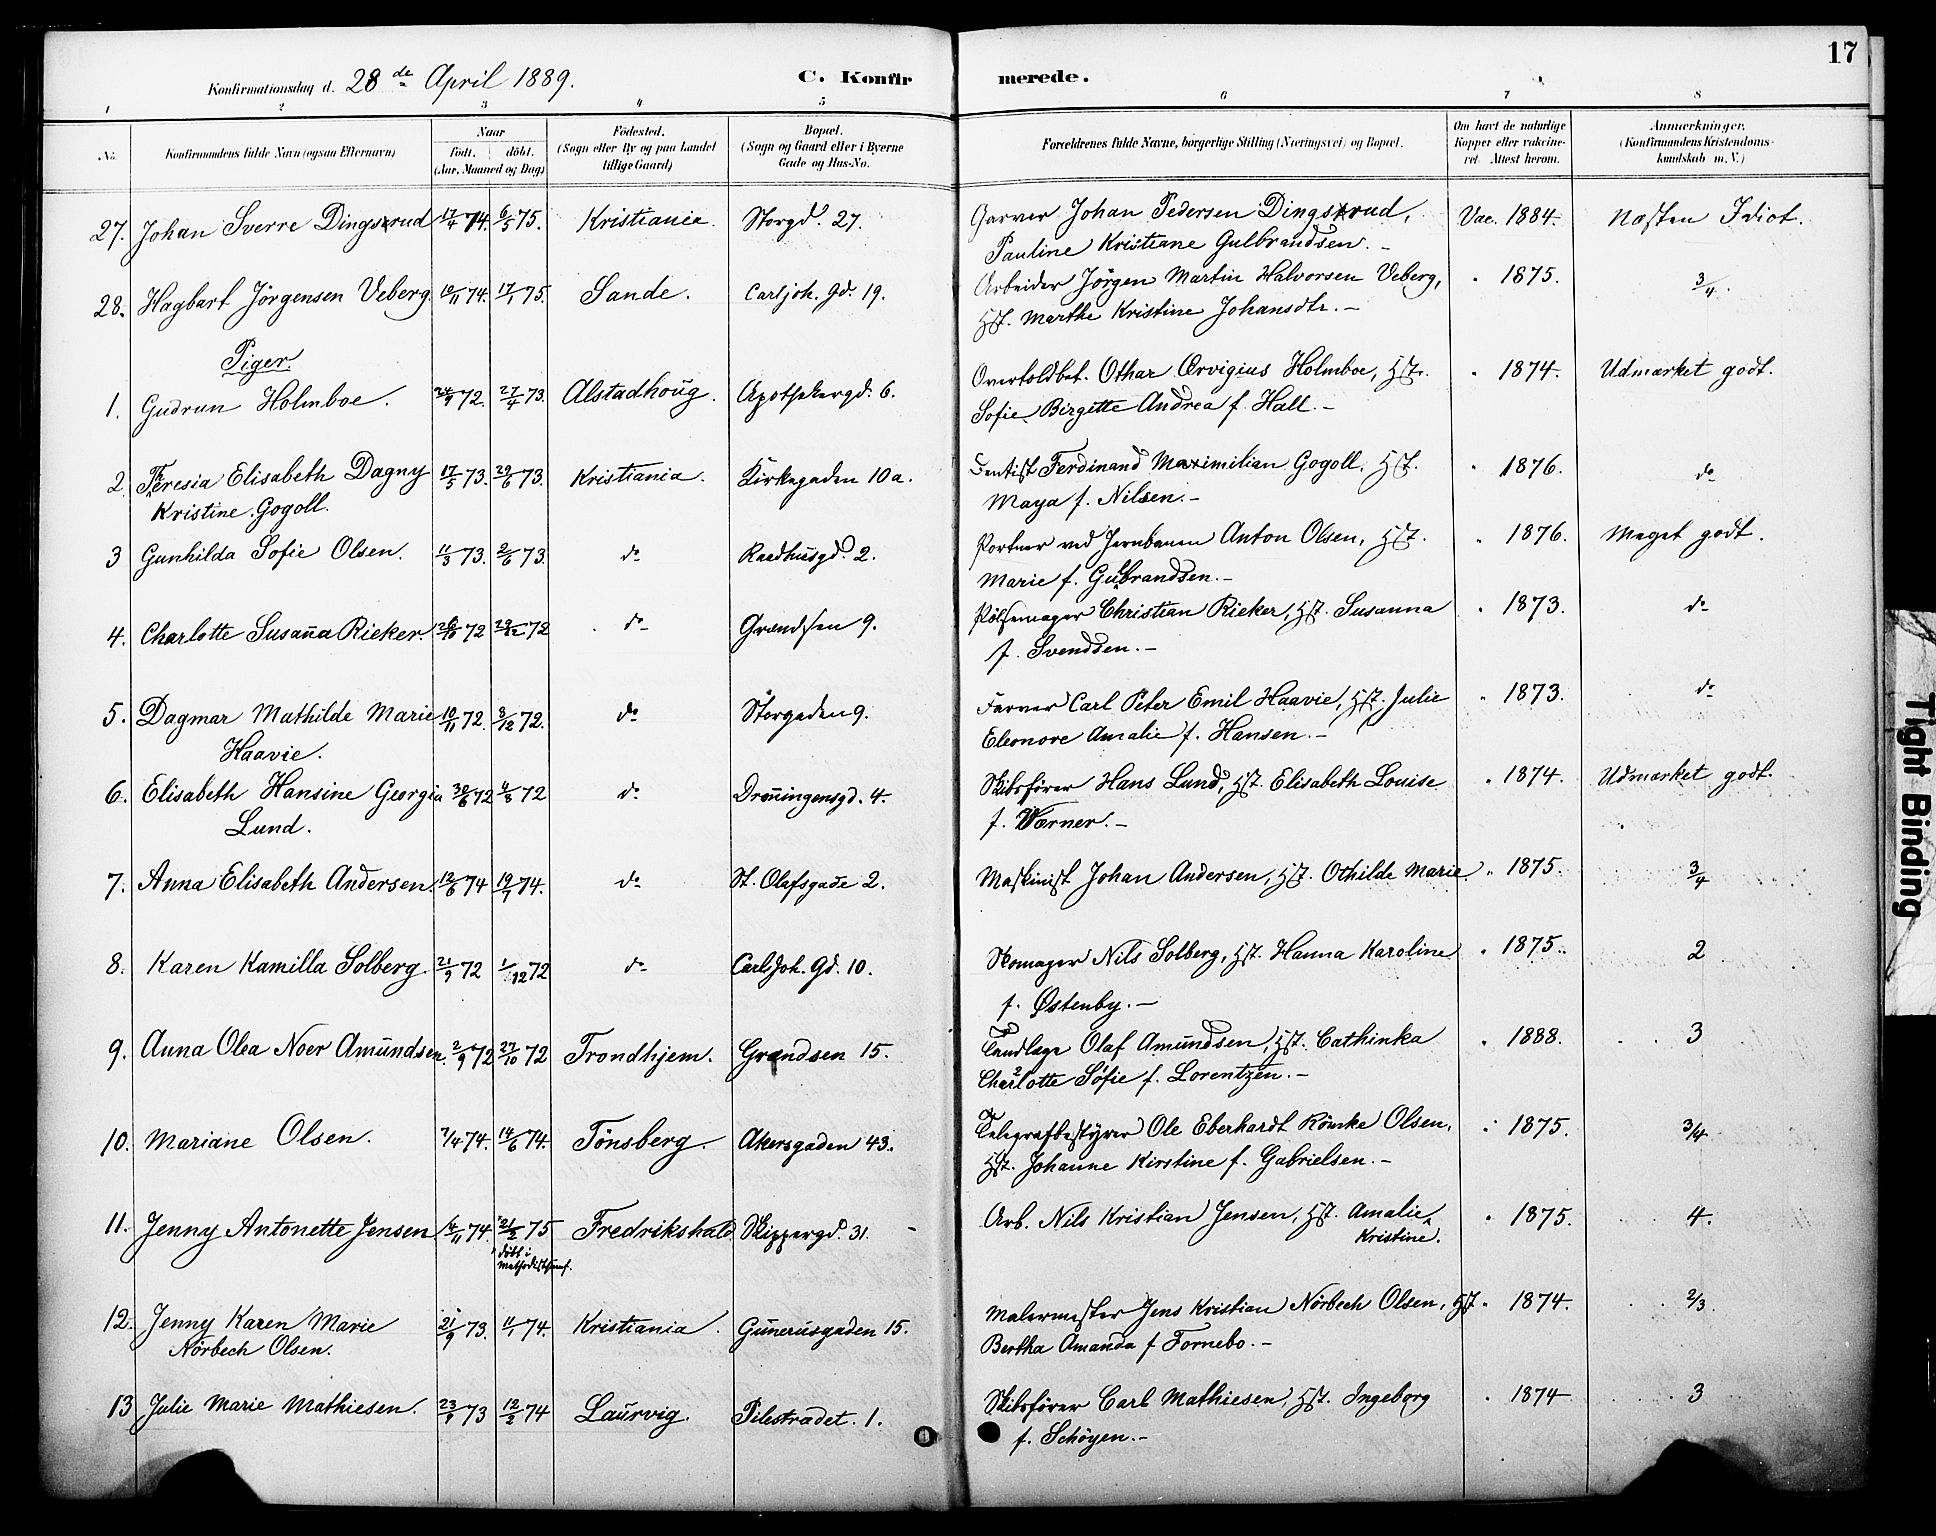 17
Konfirmationsdag d. 28de April 1889.
C. Konfirmerede.
1 2 3 4 5 6 7 8
No.
Konfirmandens fulde Navn (ogsaa Efternavn)
Naar
Födt. döbt.
(Aar, Maaned og Dag)
Födested.
(Sogn eller By og paa Landet
tillige Gaard)
Bopæl.
(Sogn og Gaard eller i Byerne
Gade og Hus-No.
Forældrenes fulde Navne, borgerlige Stilling (Næringsvei) og Bopæl.
Om havt de naturlige
Kopper eller vakcine-
ret. Attest herom.
Anmærkninger.
(Konfirmandens Kristendoms-
kundskab m. V.)
27. Johan Sverre Dingsrud 17/4 74. 6/5 75. Kristiania. Storgd. 27. Garver Johan Pedersen Dingsrud, Vac. 1884. Næsten Idiot.
Pauline Kristiane Gulbrandsen. –
28. Hagbart Jörgensen Veberg. 10/11 74. 17/1 75. Sande. Carl joh. Gd. 19. Arbeider Jörgen Martin Halvorsen Veberg, " 1875. 3/4.
Hst. Marthe Kristine Johansdtr. –
Piger.
1. Gudrun Holmboe. 24/9 72. 27/4 73. Alstadhoug. Apothekergd. 6. Overtoldbet. Othar Ervigius Holmboe, Hst. " 1874. Udmærket godt.
Sofie Birgitte Andrea f. Hall. –
2. Theresia Elisabeth Dagny 17/5 73. 29/6 73. Kristiania. Kirkegaden 10a. Dentist Ferdinand Maximilian Gogoll. Hst. " 1876. do
Kristine Gogoll.
Maya f. Nilsen. –
3 Gunhilda Sofie Olsen. 11/3 73. 2/6 73. do Raadhusgd. 2. Portner ved Jernbanen Anton Olsen, Hst. " 1876. Meget godt.
Marie f. Gulbrandsen. –
4. Charlotte Susaña Rieker. 72 29/12 72 do Grændsen 9. Pölsemager Christian Rieker, Hst. Susanna " 1873. do
f. Svendsen. –
5. Dagmar Mathilde Marie 10/11 72. 8/12 72. do Storgaden 9. Farver Carl Peter Emil Haavie, Hst. Julie " 1873. do
Haavie.
Eleonore Amalie f. Hansen. –
6. Elisabeth Hansine Georgia 30/6 72 72 do Droñingensgd. 4. Skibsfører Hans Lund, Hst. Elisabeth Louise " 1874. Udmærket godt.
Lund.
f. Wærner. –
7. Anna Elisabeth Andersen. 12/6 74 19/7 74. do St. Olafsgade 2. Maskinist Johan Andersen, Hst. Othilde Marie. " 1875. 3/4
8. Karen Kamilla Solberg 21/9 72 1/12 72 do Carl Joh. Gd. 10. Skomager Nils Solberg, Hst. Hanna Karoline " 1875. 2
f. Østenby. –
9. Anna Olea Noer Amundsen. 2/9 72 27/10 72 Trondhjem. Grændsen 15. Tandlæge Olaf Amundsen, Hst. Cathinka " 1888. 3
Charlotte Sofie f. Lorentzen. –
10. Mariane Olsen. 7/4 74. 14/6 74. Tönsberg. Akersgaden 43. Telegrafbestyrer Ole Eberhardt Römke Olsen, " 1875. 3/4
Hst. Johanne Kirstine f. Gabrielsen. –
11. Jenny Antonette Jensen 14/11 74. 21/2 75 Fredrikshald. Skippergd. 31. Arb. Nils Kristian Jensen, Hst. Amalie " 1875. 4.
döbt i
Methodistsamf.
Kristine.
12. Jenny Karen Marie 21/9 73. 11/1 74. Kristiania. Guñerusgaden 15. Malermester Jens Kristian Nörbech Olsen, Hst " 1874. 2/3
Nörbech Olsen.
Bertha Amanda f Fornebo. –
13 Julie Marie Mathiesen. 23/9 73 12/2 74 Laurvig. Pilestrædet. 1. Skibsfører Carl Mathiesen, Hst. Ingeborg " 1874 3
f. Schöyen. –
Tight Binding